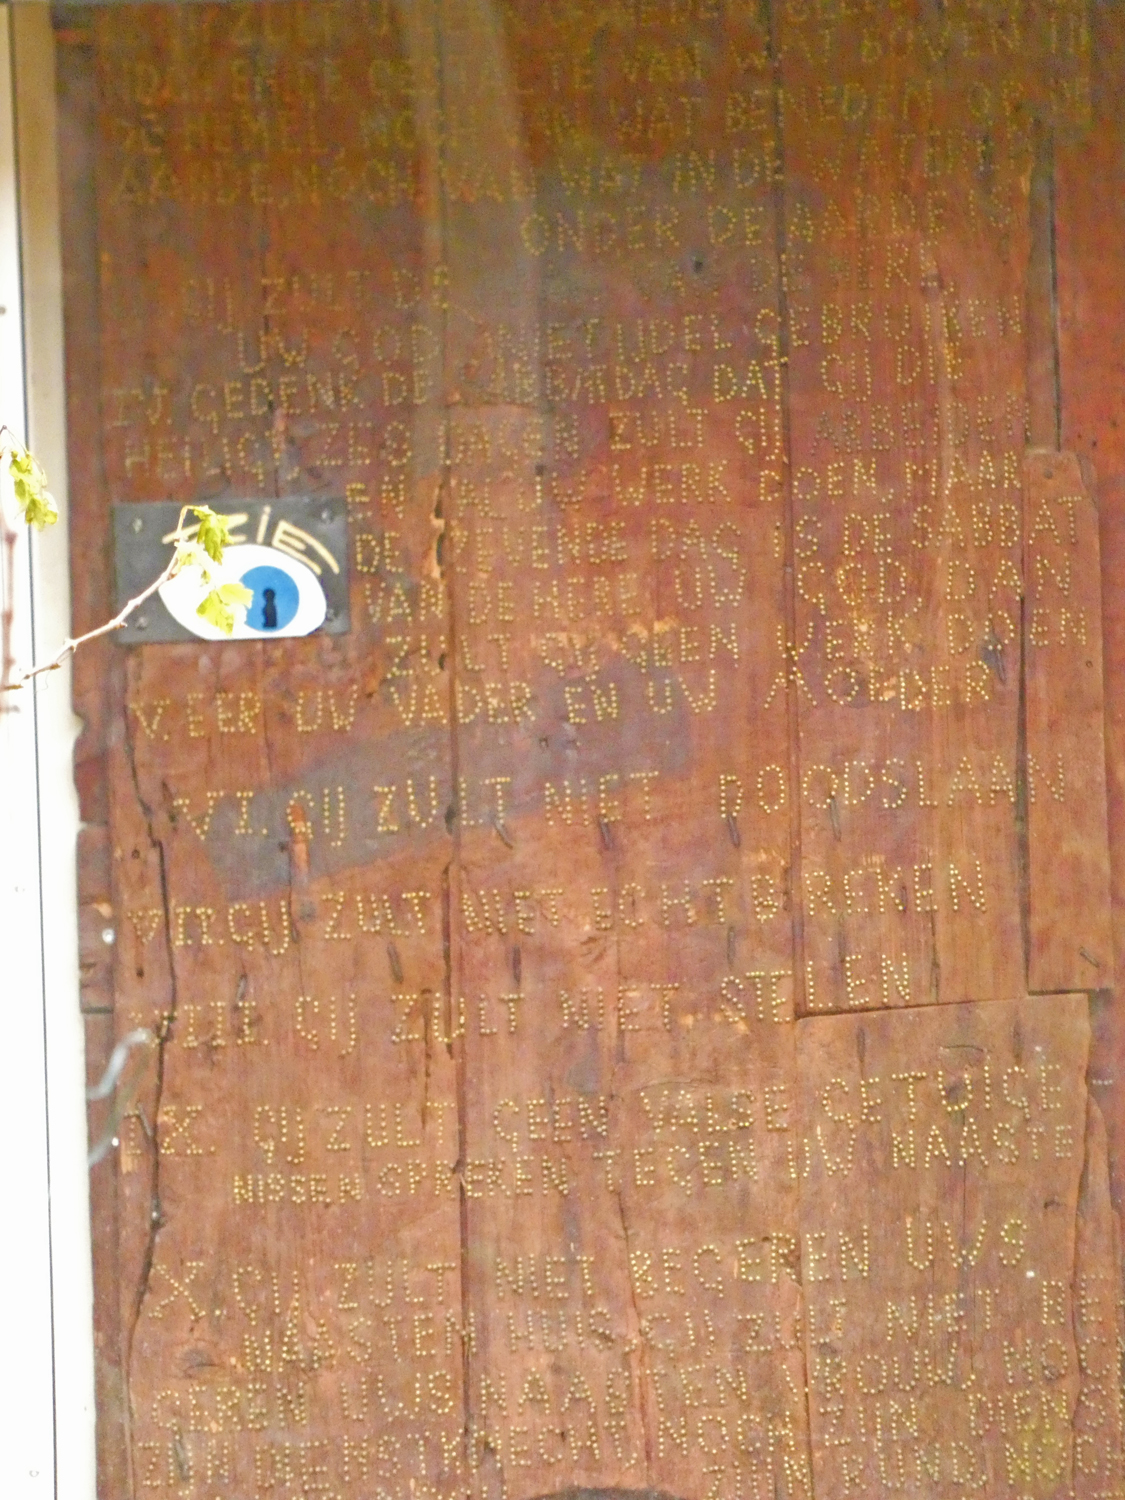 GIJ ZULT U GEEN GESNEDEN BEELD
NOCH ENIGE GESTALTE VAN WAT BOVEN IN
DE HEMEL, NOCH VAN WAT BENEDEN OP DE
AARDE, NOCH VAN WAT IN DE WATEREN
ONDER DE AARDE IS
GIJ ZULT DE VAN DE HERE
UW GOD NIET IJDEL GEBRUIKEN
IV. GEDENK DE SABBATDAG DAT GIJ DIE
HEILIGT, ZES DAGEN ZULT GIJ ARBEIDEN
EN AL UW WERK DOEN, MAAR
DE ZEVENDE DAG IS DE SABBAT
VAN DE HERE UW GOD, DAN
ZULT GIJ GEEN WERK DOEN
ZIE
V. EER UW VADER EN UW MOEDER
VI. GIJ ZULT NIET DOODSLAAN
VII. GIJ ZULT NIET ECHTBREKEN
VIII GIJ ZULT NIET STELEN
IX. GIJ ZULT GEEN VALSE GETUIGE
NISSEN SPREKEN TEGEN UW NAASTE
X. GIJ ZULT NIET BEGEREN UWS
NAASTEN HUIS, GIJ ZULT NIET BE
GEREN UWS NAASTEN VROUW NOCH
ZIJN DIENSTKNECHT, NOCH ZIJN DIENST
ZIJN RUND NOCH